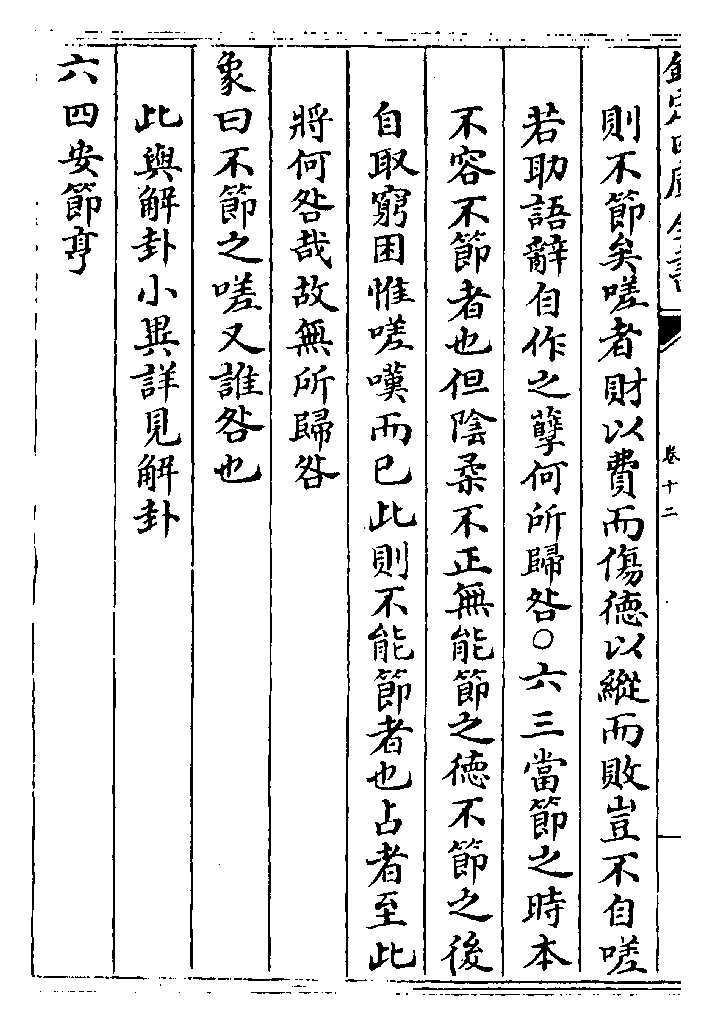 欽定四庫全書
卷十二
則不節矣嗟者財以費而傷德以縱而敗豈不自嗟
若助語辭自作之孽何所歸咎○六三當節之時本
不容不節者也但陰柔不正無能節之德不節之後
自取窮困惟嗟嘆而已此則不能節者也占者至此
將何咎哉故無所歸咎
象曰不節之嗟又誰咎也
此與解卦小異詳見解卦
六四安節亨